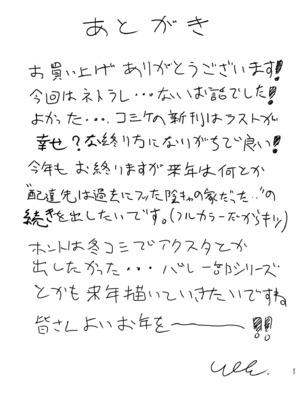 あとがき
お買い上げありがとうございます!
今回はネトラレ…ないお話でした!
よかった…コミケの新刊はラストが
幸せ?な終り方になりがちで良い!
今年もお終りますが来年は何とか
"配達先は過去にフッた陰キャの家だった…"の
続きを出したいです。(フルカラーだからキツ)
ホントは冬コミでアクスタとか
出したかった…バレー部シリーズ
とかも来年描いていきたいですね
皆さんよいお年を――!!